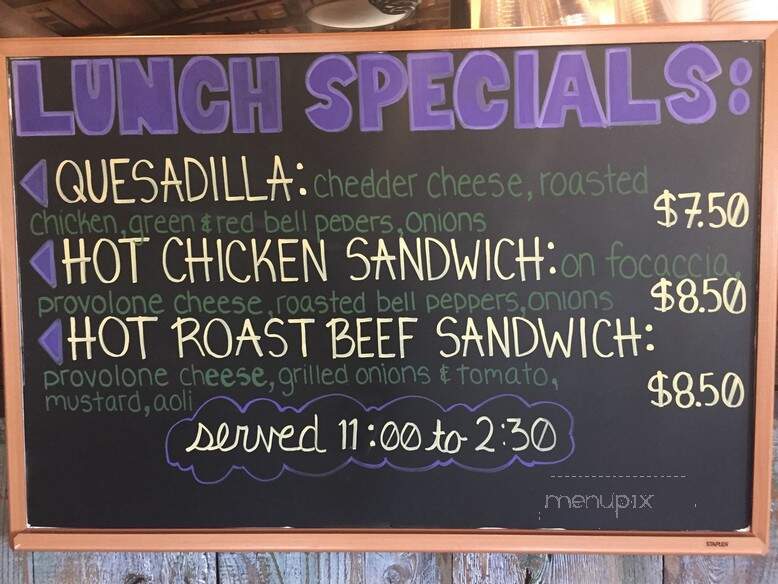 LUNCH SPECIALS:
QUESADILLA: chedder cheese, roasted
chicken, green & red bell pepers, onions $7.50
HOT CHICKEN SANDWICH: on focaccia,
provolone cheese, roasted bell peppers, onions $8.50
HOT ROAST BEEF SANDWICH:
provolone cheese, grilled onions & tomato,
mustard, aoli $8.50
served 11:00 to 2:30
menupix
STAPLES